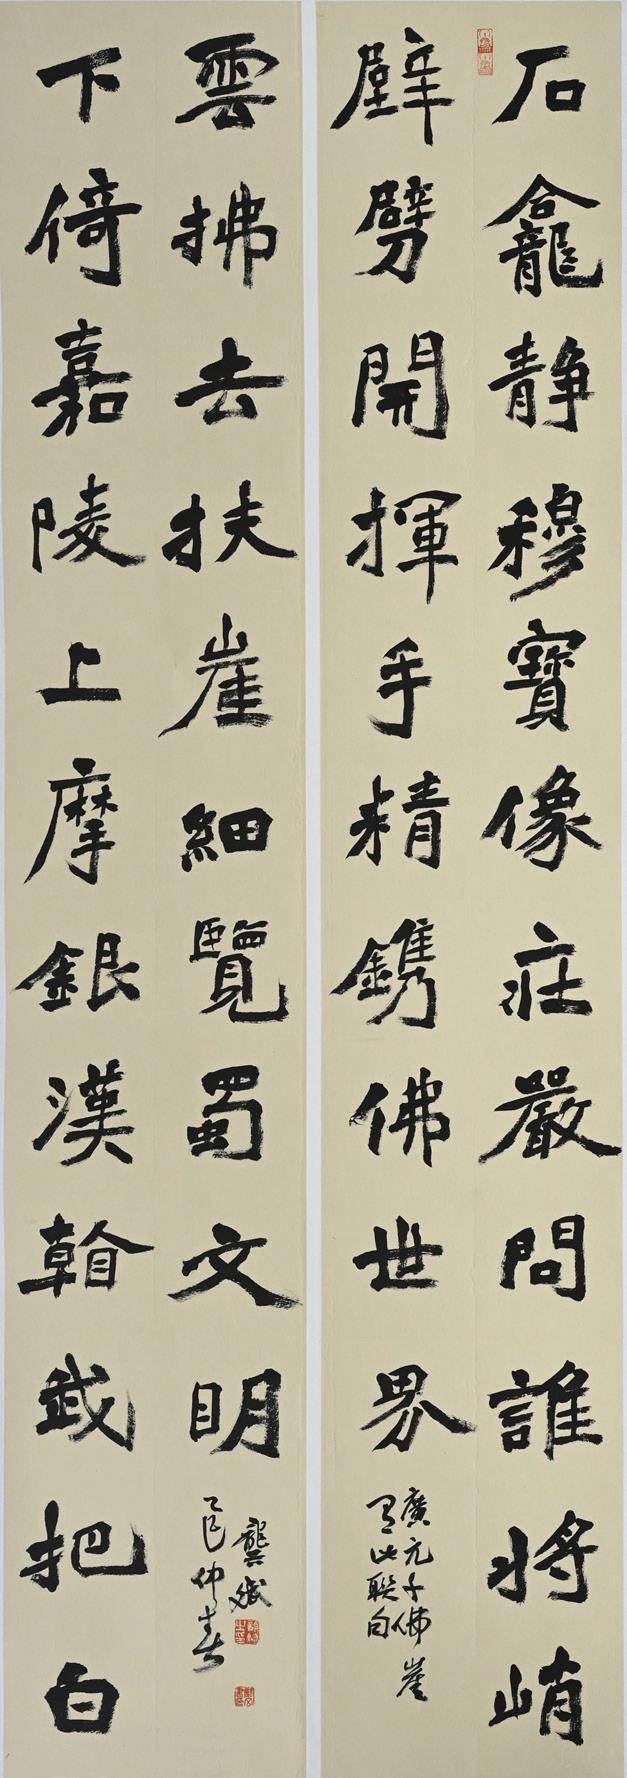 石龕静穆寶像莊嚴問誰將峭
壁劈開揮手精鐫佛世界
廣元千佛崖
有此聯
下倚嘉陵上摩銀漢看我把白
雲拂去扶崖細覽蜀文明
乙巳仲春
龔